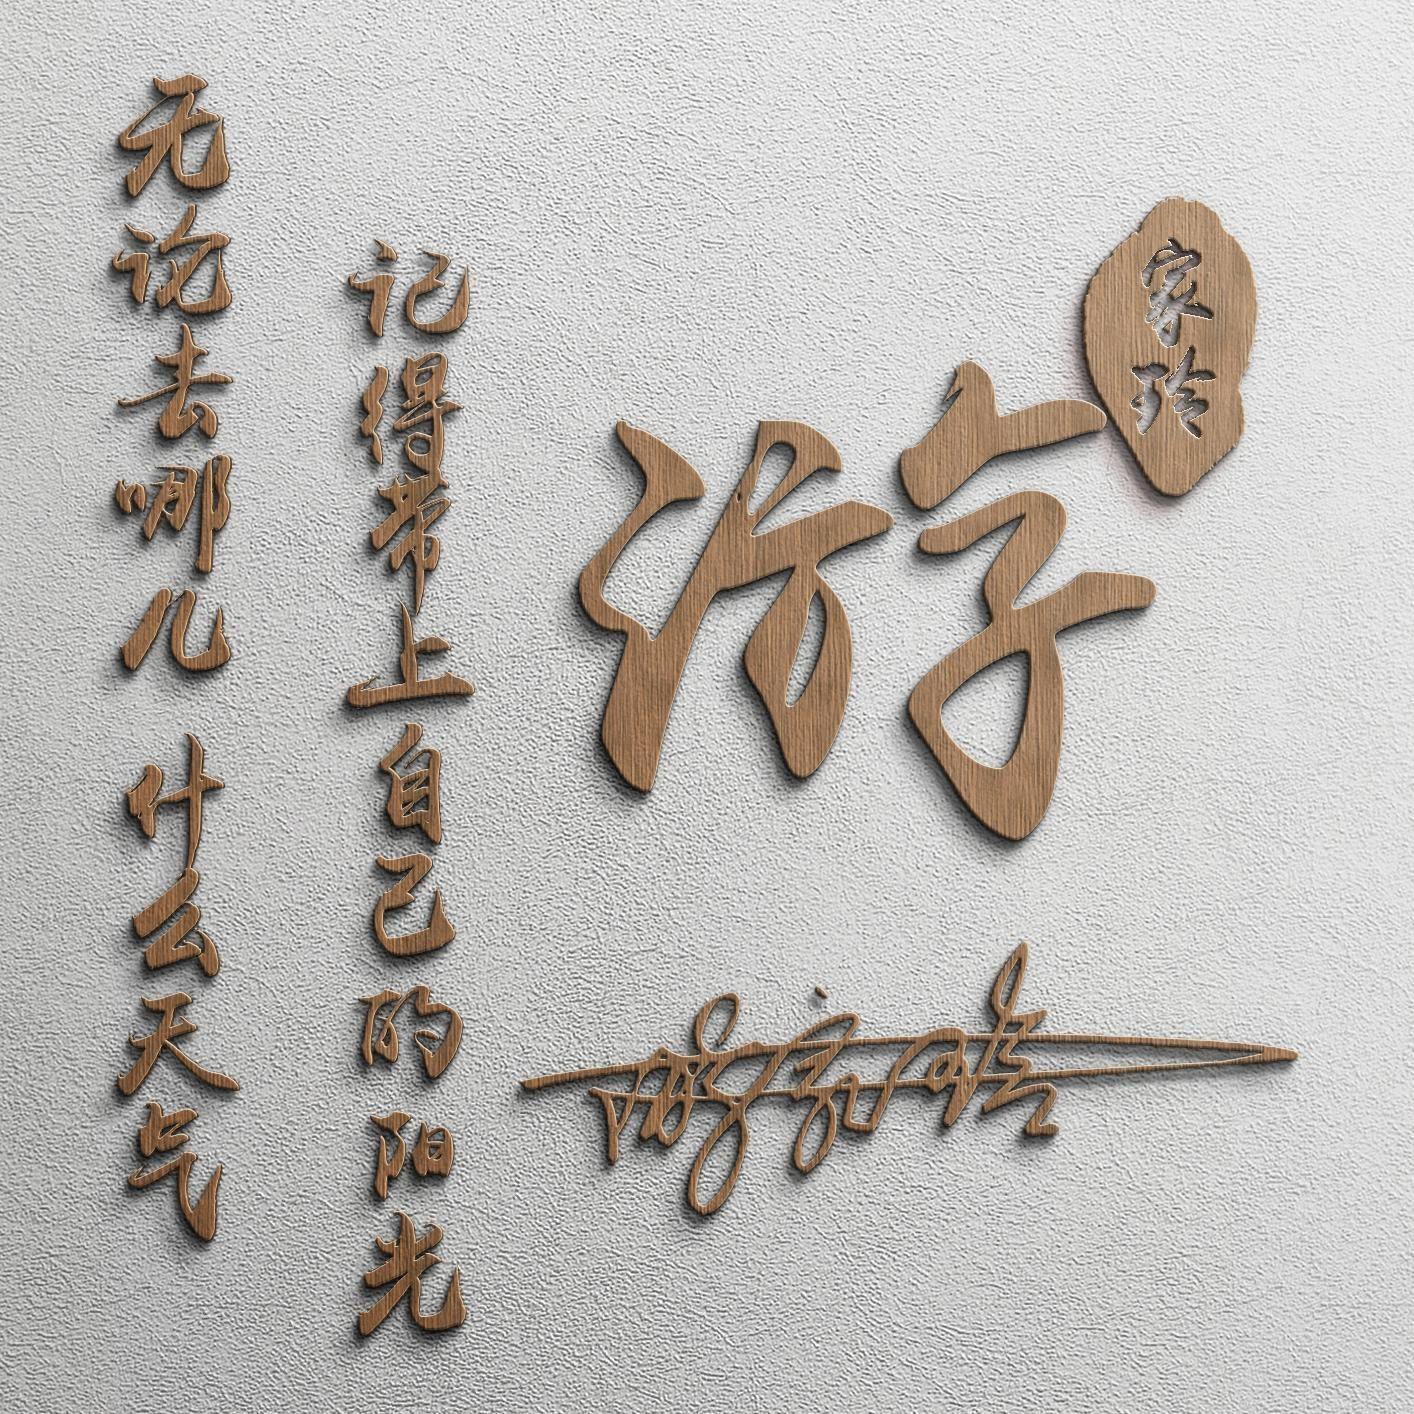 无论去哪儿 什么天气
记得带上自己的阳光
游
家玲